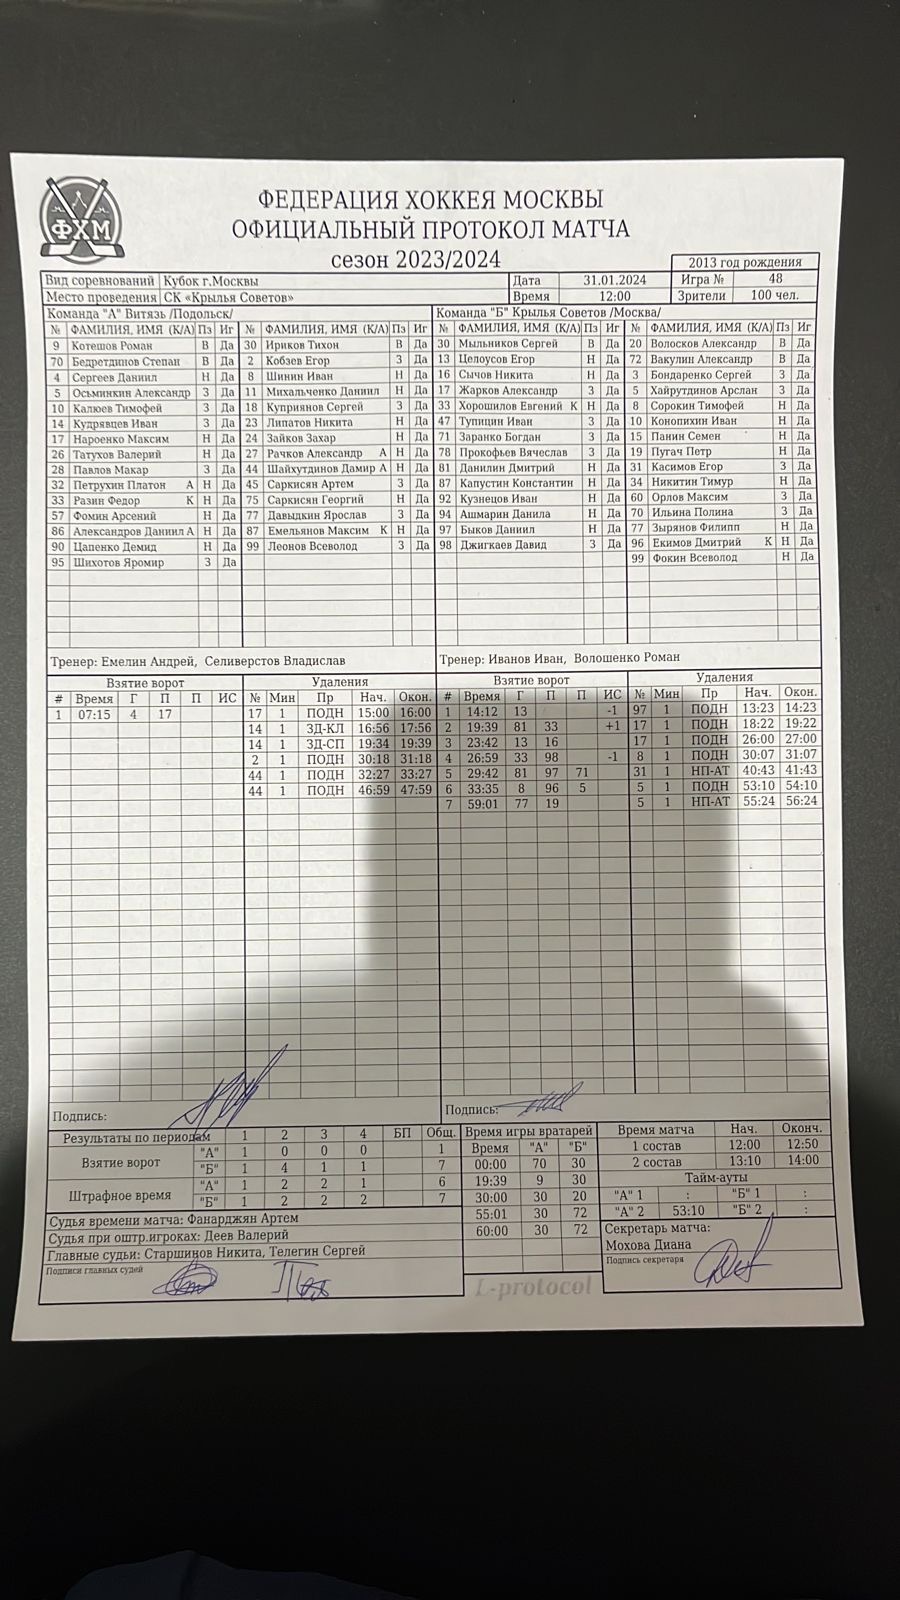 ФХМ
ФЕДЕРАЦИЯ ХОККЕЯ МОСКВЫ
ОФИЦИАЛЬНЫЙ ПРОТОКОЛ МАТЧА
сезон 2023/2024
2013 год рождения
Вид соревнований Кубок г.Москвы Дата 31.01.2024 Игра № 48
Место проведения СК «Крылья Советов» Время 12:00 Зрители 100 чел.
Команда "А" Витязь /Подольск/ Команда "Б" Крылья Советов /Москва/
№ ФАМИЛИЯ, ИМЯ (К/А) Пз Иг № ФАМИЛИЯ, ИМЯ (К/А) Пз Иг № ФАМИЛИЯ, ИМЯ (К/А) Пз Иг № ФАМИЛИЯ, ИМЯ (К/А) Пз Иг
9 Котешов Роман В Да 30 Ириков Тихон В Да 30 Мыльников Сергей В Да 20 Волосков Александр В Да
70 Бедретдинов Степан В Да 2 Кобзев Егор З Да 13 Целоусов Егор Н Да 72 Вакулин Александр В Да
4 Сергеев Даниил Н Да 8 Шинин Иван Н Да 16 Сычов Никита Н Да 3 Бондаренко Сергей З Да
5 Осьминкин Александр З Да 11 Михальченко Даниил Н Да 17 Жарков Александр З Да 5 Хайрутдинов Арслан З Да
10 Калюев Тимофей З Да 18 Куприянов Сергей З Да 33 Хорошилов Евгений К Н Да 8 Сорокин Тимофей Н Да
14 Кудрявцев Иван З Да 23 Липатов Никита Н Да 47 Тупицин Иван З Да 10 Конопихин Иван Н Да
17 Нароенко Максим Н Да 24 Зайков Захар Н Да 71 Заранко Богдан З Да 15 Панин Семен Н Да
26 Татухов Валерий Н Да 27 Рачков Александр А Н Да 78 Прокофьев Вячеслав З Да 19 Пугач Петр Н Да
28 Павлов Макар З Да 44 Шайхутдинов Дамир А Н Да 81 Данилин Дмитрий Н Да 31 Касимов Егор З Да
32 Петрухин Платон А Н Да 45 Саркисян Артем З Да 87 Капустин Константин Н Да 34 Никитин Тимур Н Да
33 Разин Федор К Н Да 75 Саркисян Георгий Н Да 92 Кузнецов Иван Н Да 60 Орлов Максим З Да
57 Фомин Арсений Н Да 77 Давыдкин Ярослав З Да 94 Ашмарин Данила Н Да 70 Ильина Полина З Да
86 Александров Даниил А Н Да 87 Емельянов Максим К Н Да 97 Быков Даниил Н Да 77 Зырянов Филипп Н Да
90 Цапенко Демид Н Да 99 Леонов Всеволод З Да 98 Джигкаев Давид З Да 96 Екимов Дмитрий К Н Да
95 Шихотов Яромир З Да 99 Фокин Всеволод Н Да
Тренер: Емелин Андрей, Селиверстов Владислав Тренер: Иванов Иван, Волошенко Роман
Взятие ворот Удаления Взятие ворот Удаления
# Время Г П П ИС № Мин Пр Нач. Окон. # Время Г П П ИС № Мин Пр Нач. Окон.
1 07:15 4 17 17 1 ПОДН 15:00 16:00 1 14:12 13 -1 97 1 ПОДН 13:23 14:23
14 1 ЗД-КЛ 16:56 17:56 2 19:39 81 33 +1 17 1 ПОДН 18:22 19:22
14 1 ЗД-СП 19:34 19:39 3 23:42 13 16 17 1 ПОДН 26:00 27:00
2 1 ПОДН 30:18 31:18 4 26:59 33 98 -1 8 1 ПОДН 30:07 31:07
44 1 ПОДН 32:27 33:27 5 29:42 81 97 71 31 1 НП-АТ 40:43 41:43
44 1 ПОДН 46:59 47:59 6 33:35 8 96 5 5 1 ПОДН 53:10 54:10
7 59:01 77 19 5 1 НП-АТ 55:24 56:24
Подпись: Подпись:
Результаты по периодам 1 2 3 4 БП Общ. Время игры вратарей Время матча Нач. Оконч.
Взятие ворот "А" 1 0 0 0 1 Время "А" "Б" 1 состав 12:00 12:50
"Б" 1 4 1 1 7 00:00 70 30 2 состав 13:10 14:00
Штрафное время "А" 1 2 2 1 6 19:39 9 30 Тайм-ауты
"Б" 1 2 2 2 7 30:00 30 20 "А" 1 : "Б" 1 :
Судья времени матча: Фанарджян Артем 55:01 30 72 "А" 2 53:10 "Б" 2 :
Судья при оштр.игроках: Деев Валерий 60:00 30 72 Секретарь матча:
Главные судьи: Старшинов Никита, Телегин Сергей Мохова Диана
Подписи главных судей Подпись секретаря
L-protocol